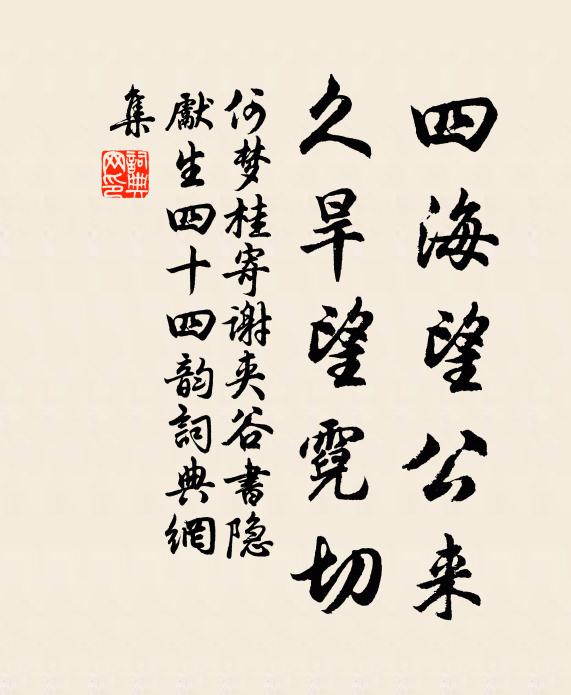 四海望公来
久旱望霓切
何梦桂寄谢夹谷书隐
献生四十四韵詞典網
集
詞典
网印